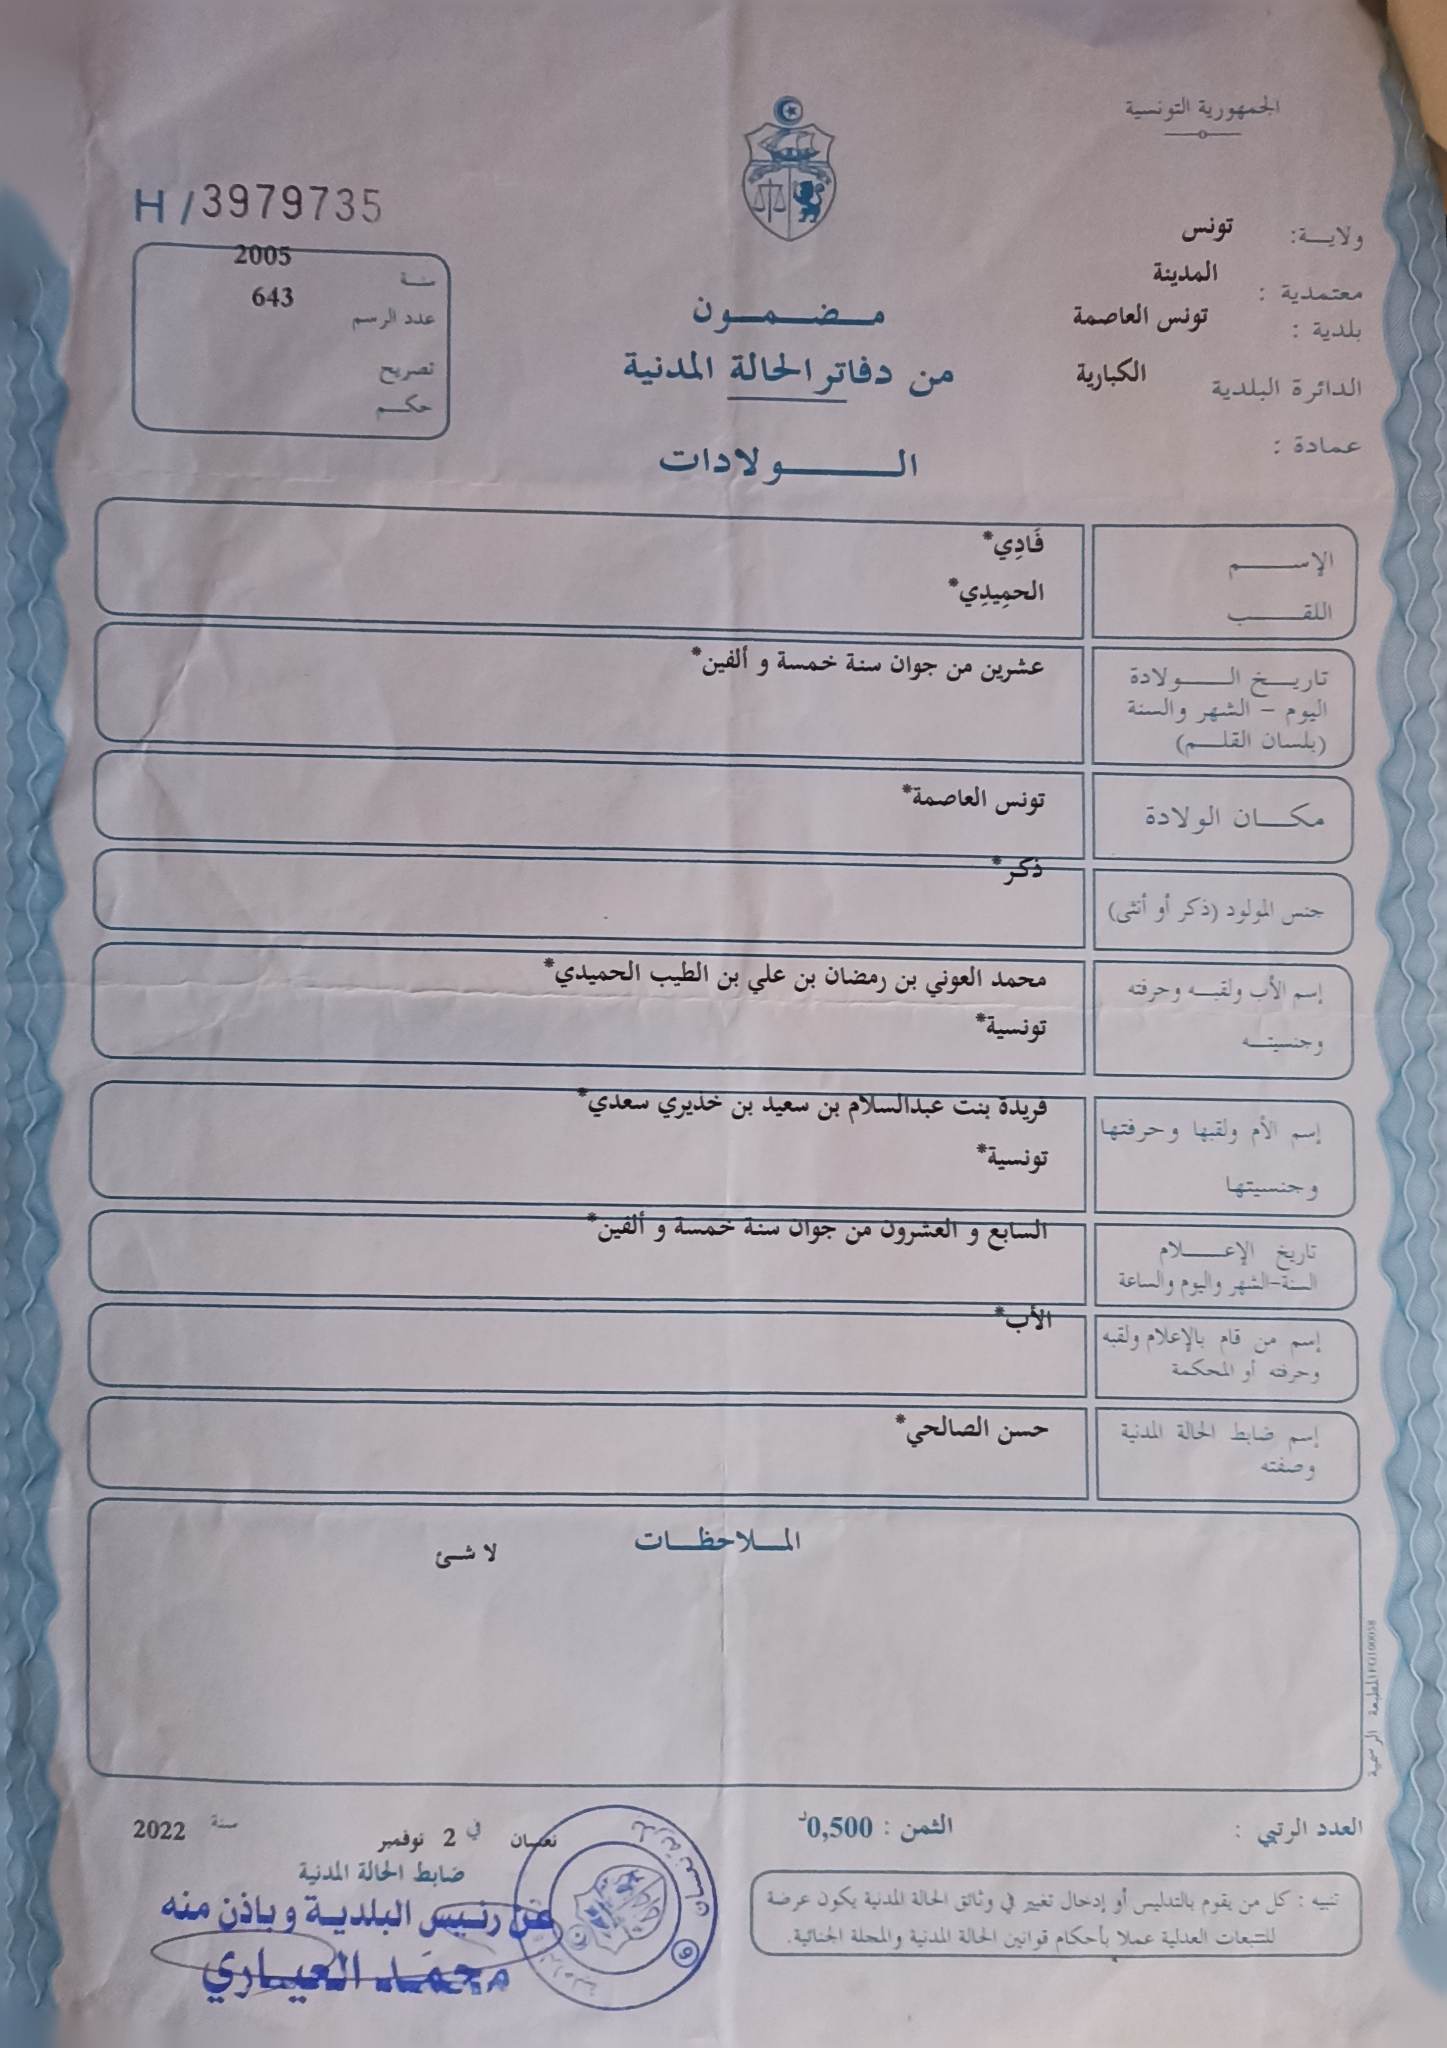 الجمهورية التونسية
H / 3979735
ولايـــة: تونس
معتمدية : المدينة
بلدية : تونس العاصمة
الدائرة البلدية الكبارية
عمادة :
سنـــة 2005
عدد الرسم 643
تصريح
حكـــم
مـــضـــمـــون
من دفاتر الحالة المدنية
الـــــولادات
الإســـــم فَادِي*
اللقـــــب الحمِيدِي*
تاريـــخ الـــــولادة عشرين من جوان سنة خمسة و ألفين*
اليوم – الشهر والسنة
(بلسان القلـــم)
مكـــان الولادة تونس العاصمة*
جنس المولود (ذكر أو أنثى) ذكر*
إسم الأب ولقبـــه وحرفته محمد العوني بن رمضان بن علي بن الطيب الحميدي*
وجنسيتـــه تونسية*
إسم الأم ولقبها وحرفتها فريدة بنت عبدالسلام بن سعيد بن خذيري سعدي*
وجنسيتها تونسية*
تاريخ الإعـــــلام السابع و العشرون من جوان سنة خمسة و ألفين*
السنة-الشهر واليوم والساعة
إسم من قام بالإعلام ولقبه الأب*
وحرفته أو المحكمة
إسم ضابط الحالة المدنية حسن الصالحي*
وصفته
المـــلاحظـــات
لا شئ
المطبعة الرسمية
العدد الرتبي :
الثمن : 0,500د
نعسان في 2 نوفمبر سنة 2022
ضابط الحالة المدنية
عن رئيس البلدية وباذن منه
محمد العياري
تنبيه : كل من يقوم بالتدليس أو إدخال تغيير في وثائق الحالة المدنية يكون عرضة
للتتبعات العدلية عملا بأحكام قوانين الحالة المدنية والمجلة الجنائية.